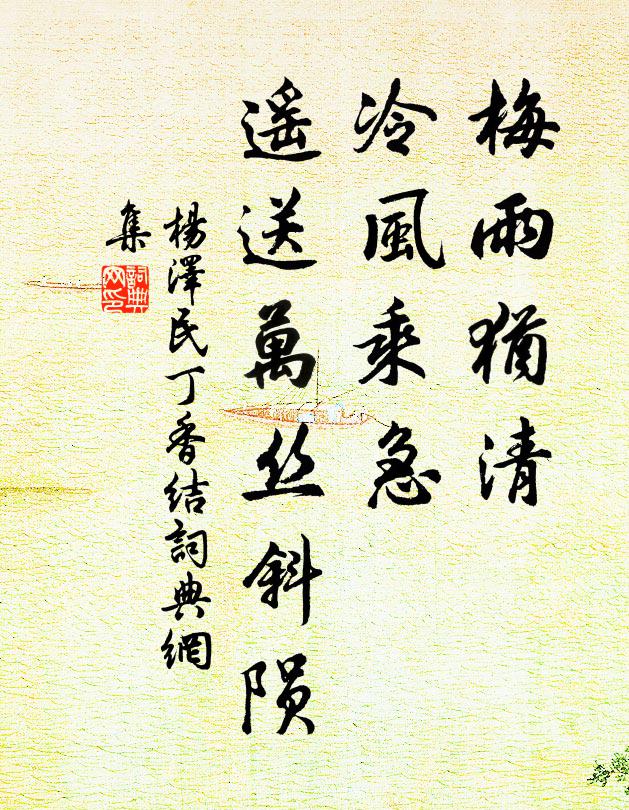 梅雨猶清
冷風乘急
遥送萬丝斜隕
楊澤民丁香結詞典網
集
詞典
网印